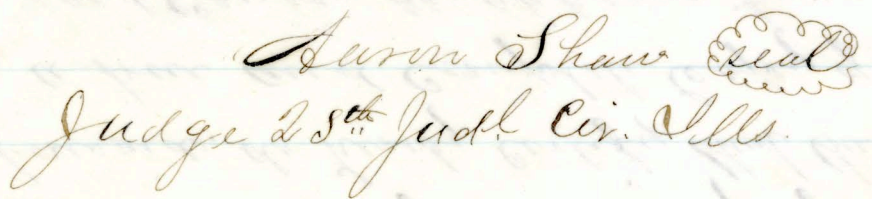 Aaron Shaw seal
Judge 25th Judl. Cir. Ills.